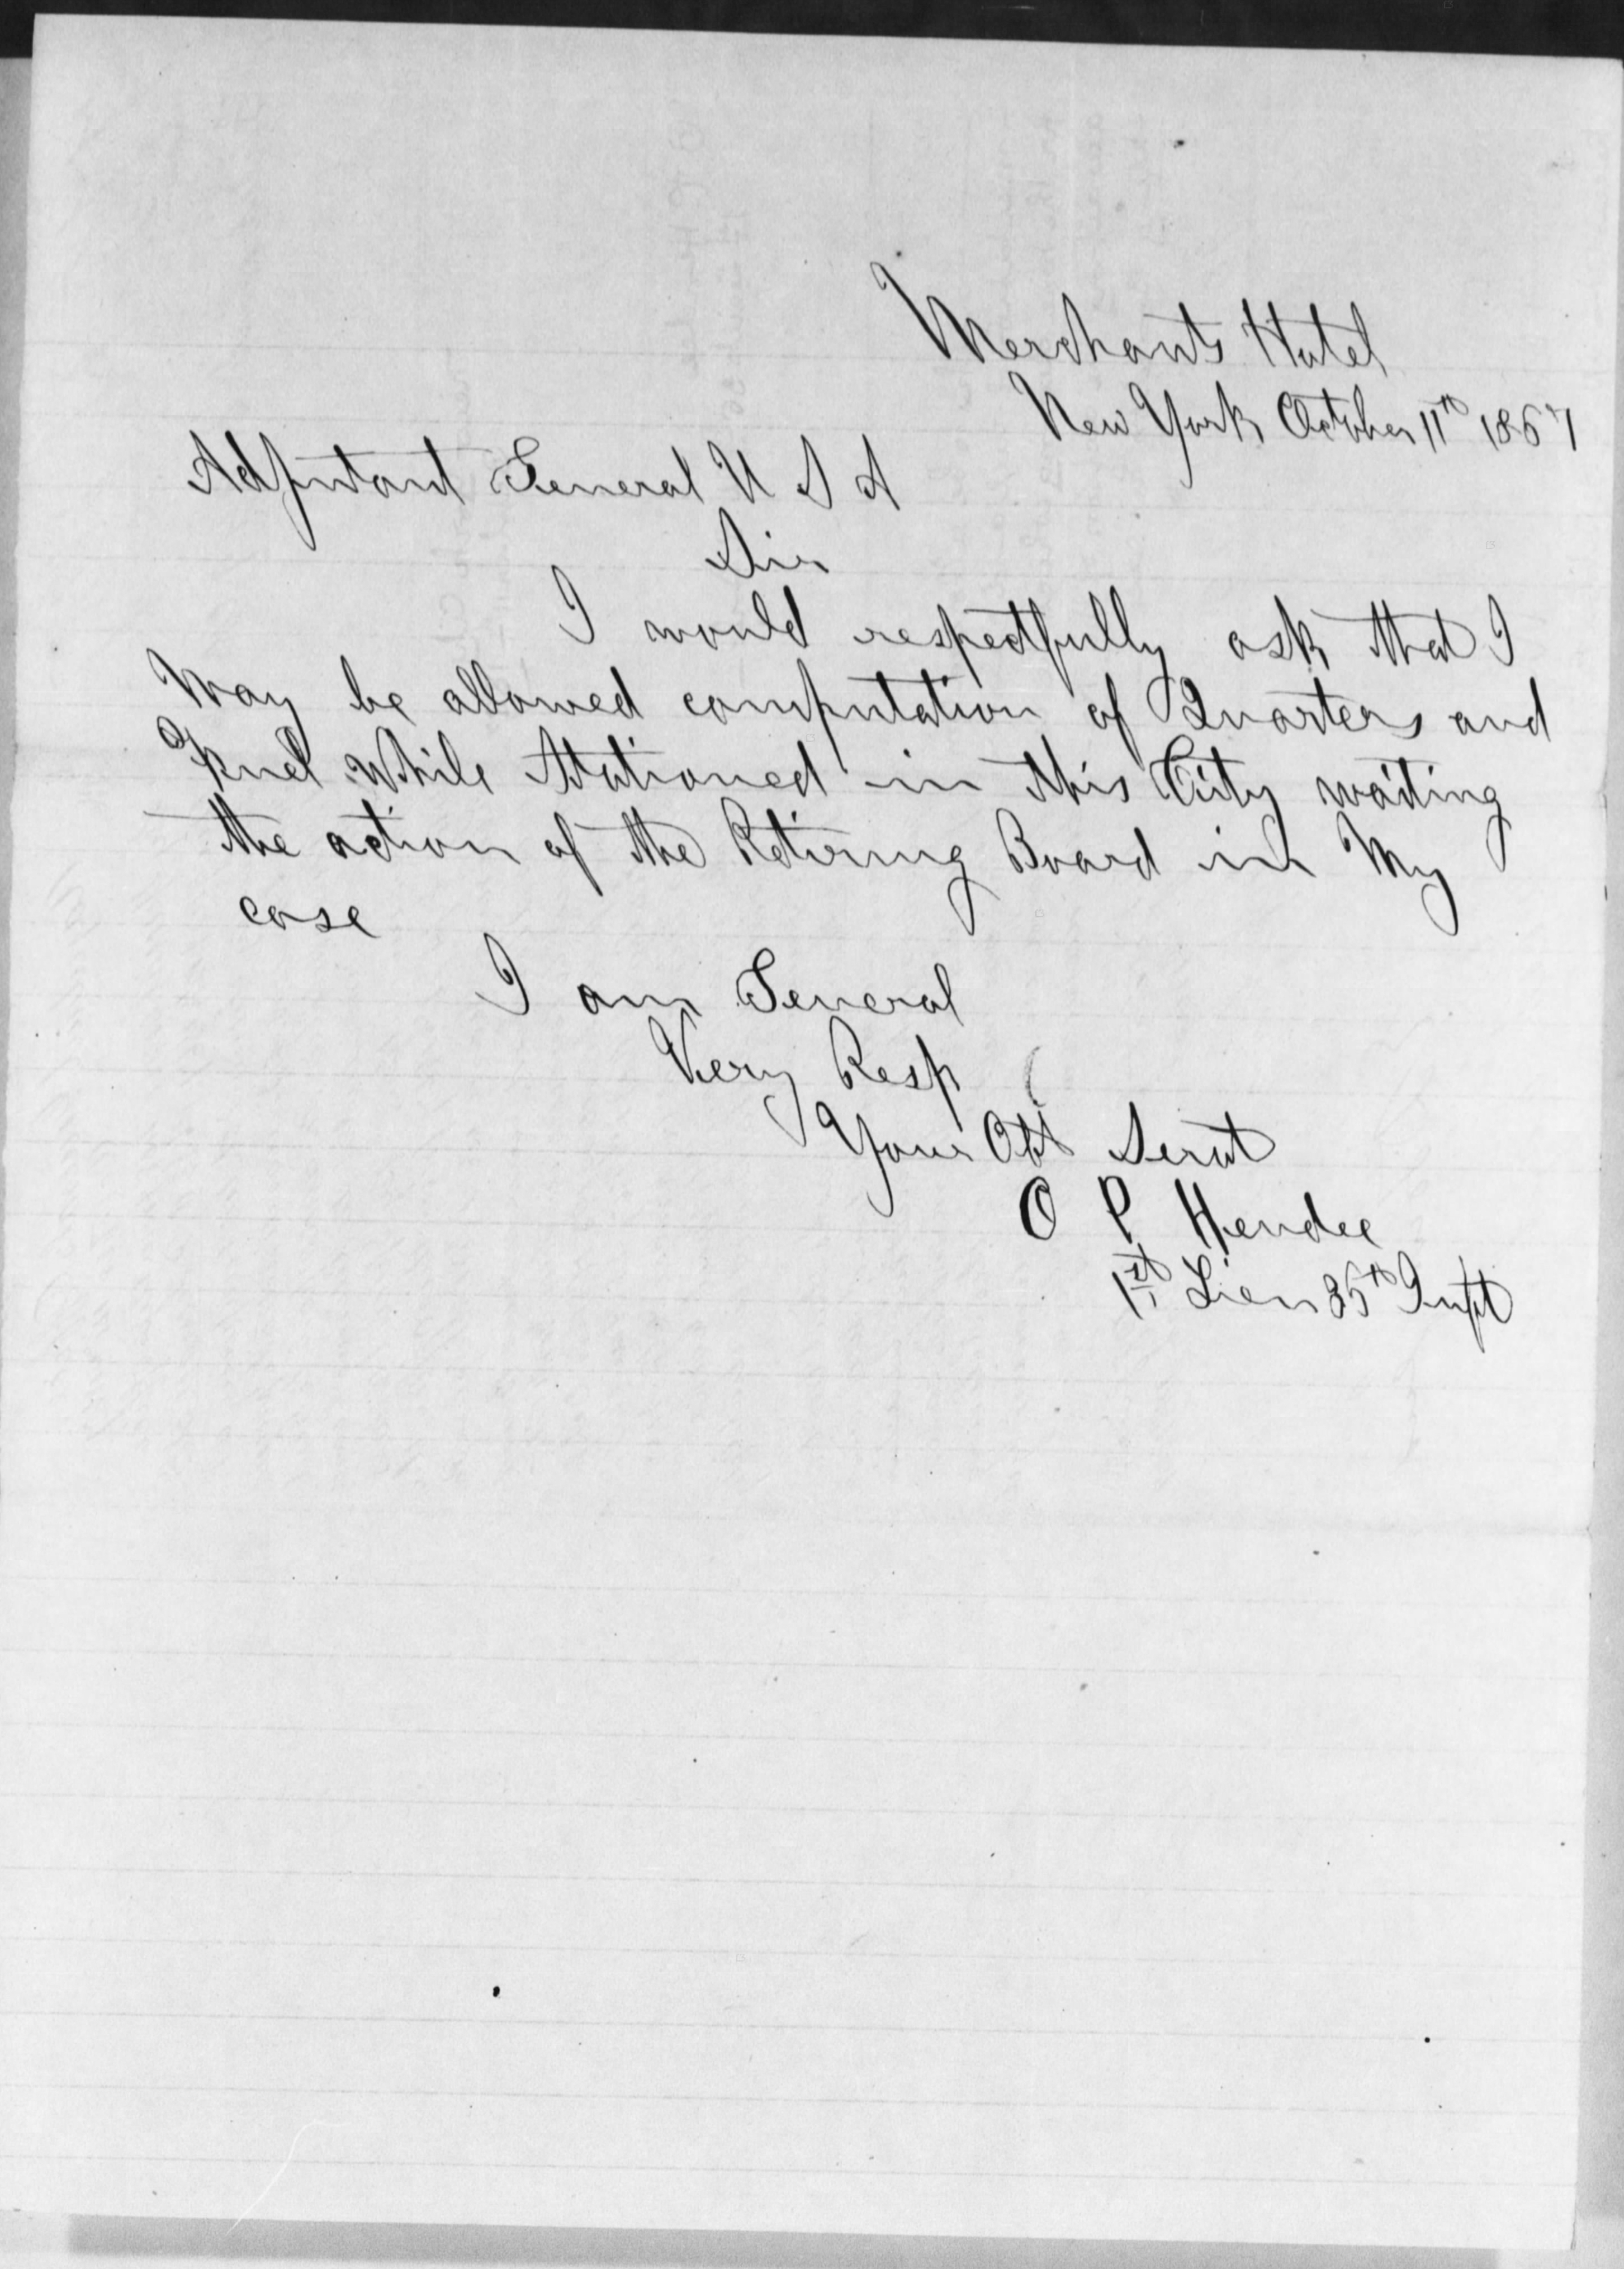 Merchants Hotel
New York October 11th 1867
Adjutant General U S A
Sir
I would respectfully ask that I
May be allowed computation of Quarters and
Fuel while Stationed in this City waiting
the action of the Retiring Board in My
case
I am General
Very Resp
Your Obt Servt
O P Hendee
1st Lieu 35th Inft